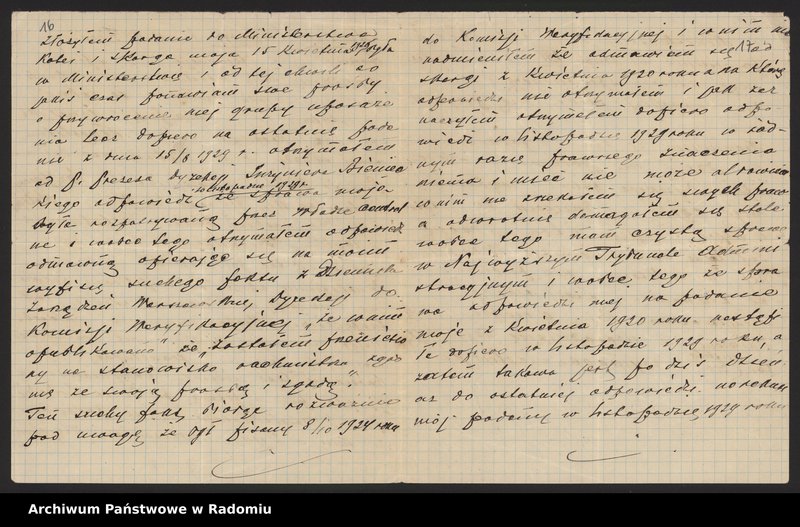 16
złożyłem podanie do Ministerstwa
Kolei i skarga moja 15 kwietnia była
w Ministerstwie i od tej chwili co
jakiś czas ponawiam swe prośby
o przywrócenie mej grupy uposaże
nia lecz dopiero na ostatnią poda
nie z dnia 15/8 1929 r. otrzymałem
od P. Prezesa Dyrekcji Inżyniera
kiego odpowiedź że sprawa moja
w listopadzie 1929 r.
była rozpatrywaną przez Władze central
ne i wobec tego otrzymałem odpowiedź
odmowną opierając się na moim
suchego faktu z Dziennika
Zarządzeń Warszawskiej Dyrekcji do
Komisji Weryfikacyjnej, że w nim
opublikowano "że zostałem przeniesio
ny na stanowisko rachmistrza zgod
nie ze swoją prośbą i zgodą".
Ten suchy fakt biorąc rozważnie
pod uwagę że był pisany 8/10 1924 roku
17
do Komisji Weryfikacyjnej i w nim nie
nadmieniłem że odmawiam się od
skargi z kwietnia 1920 roku a na którą
odpowiedzi nie otrzymałem i jak zaz
naczyłem otrzymałem dopiero odpo
wiedź w listopadzie 1929 roku w żad
nym razie prawnego znaczenia
niema i mieć nie może albowiem
w nim nie zrzekałem się swych praw
a odwrotnie domagałem się stale
wobec tego mam czystą sprawę
w Najwyższym Trybunale Admini
stracyjnym i wobec tego że spra
wa odpowiedzi mej na podanie
moje z kwietnia 1920 roku nastąpi
ła dopiero w listopadzie 1929 roku, a
zatem takowa jest po dziś dzień
aż do ostatniej odpowiedzi na
mój podany w listopadzie 1929 roku
Archiwum Państwowe w Radomiu